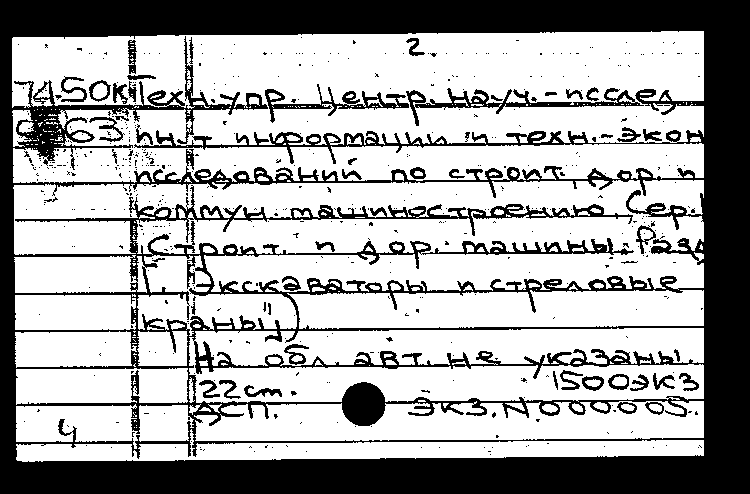 2.
74-50к Техн. упр. Центр. науч.-исслед
63 ин-т информации и техн.-экон
исследований по строит., дор. и
коммун. машиностроению, Сер.
Строит. и дор. машины. Разд
Г. Экскаваторы и стреловые
краны").
На обл. авт. не указаны.
22 cm. 1500 экз
ДСП. Экз. N.000005.
4